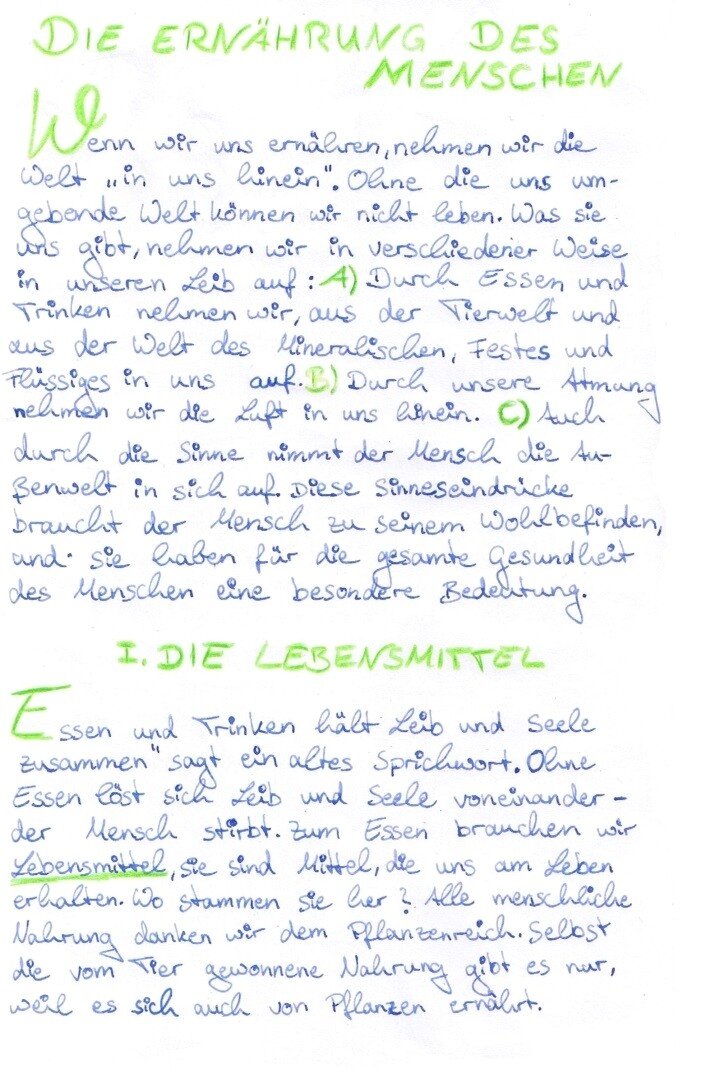 DIE ERNÄHRUNG DES
MENSCHEN
Wenn wir uns ernähren, nehmen wir die
Welt „in uns hinein". Ohne die uns um-
gebende Welt können wir nicht leben. Was sie
uns gibt, nehmen wir in verschiedener Weise
in unseren Leib auf: A) Durch Essen und
Trinken nehmen wir, aus der Tierwelt und
aus der Welt des Mineralischen, Festes und
Flüssiges in uns auf. B) Durch unsere Atmung
nehmen wir die Luft in uns hinein. C) Auch
durch die Sinne nimmt der Mensch die Au-
ßenwelt in sich auf. Diese Sinneseindrücke
braucht der Mensch zu seinem Wohlbefinden,
und sie haben für die gesamte Gesundheit
des Menschen eine besondere Bedeutung.
I. DIE LEBENSMITTEL
Essen und Trinken hält Leib und Seele
zusammen" sagt ein altes Sprichwort. Ohne
Essen löst sich Leib und Seele voneinander -
der Mensch stirbt. Zum Essen brauchen wir
Lebensmittel, sie sind Mittel, die uns am Leben
erhalten. Wo stammen sie her? Alle menschliche
Nahrung danken wir dem Pflanzenreich. Selbst
die vom Tier gewonnene Nahrung gibt es nur,
weil es sich auch von Pflanzen ernährt.